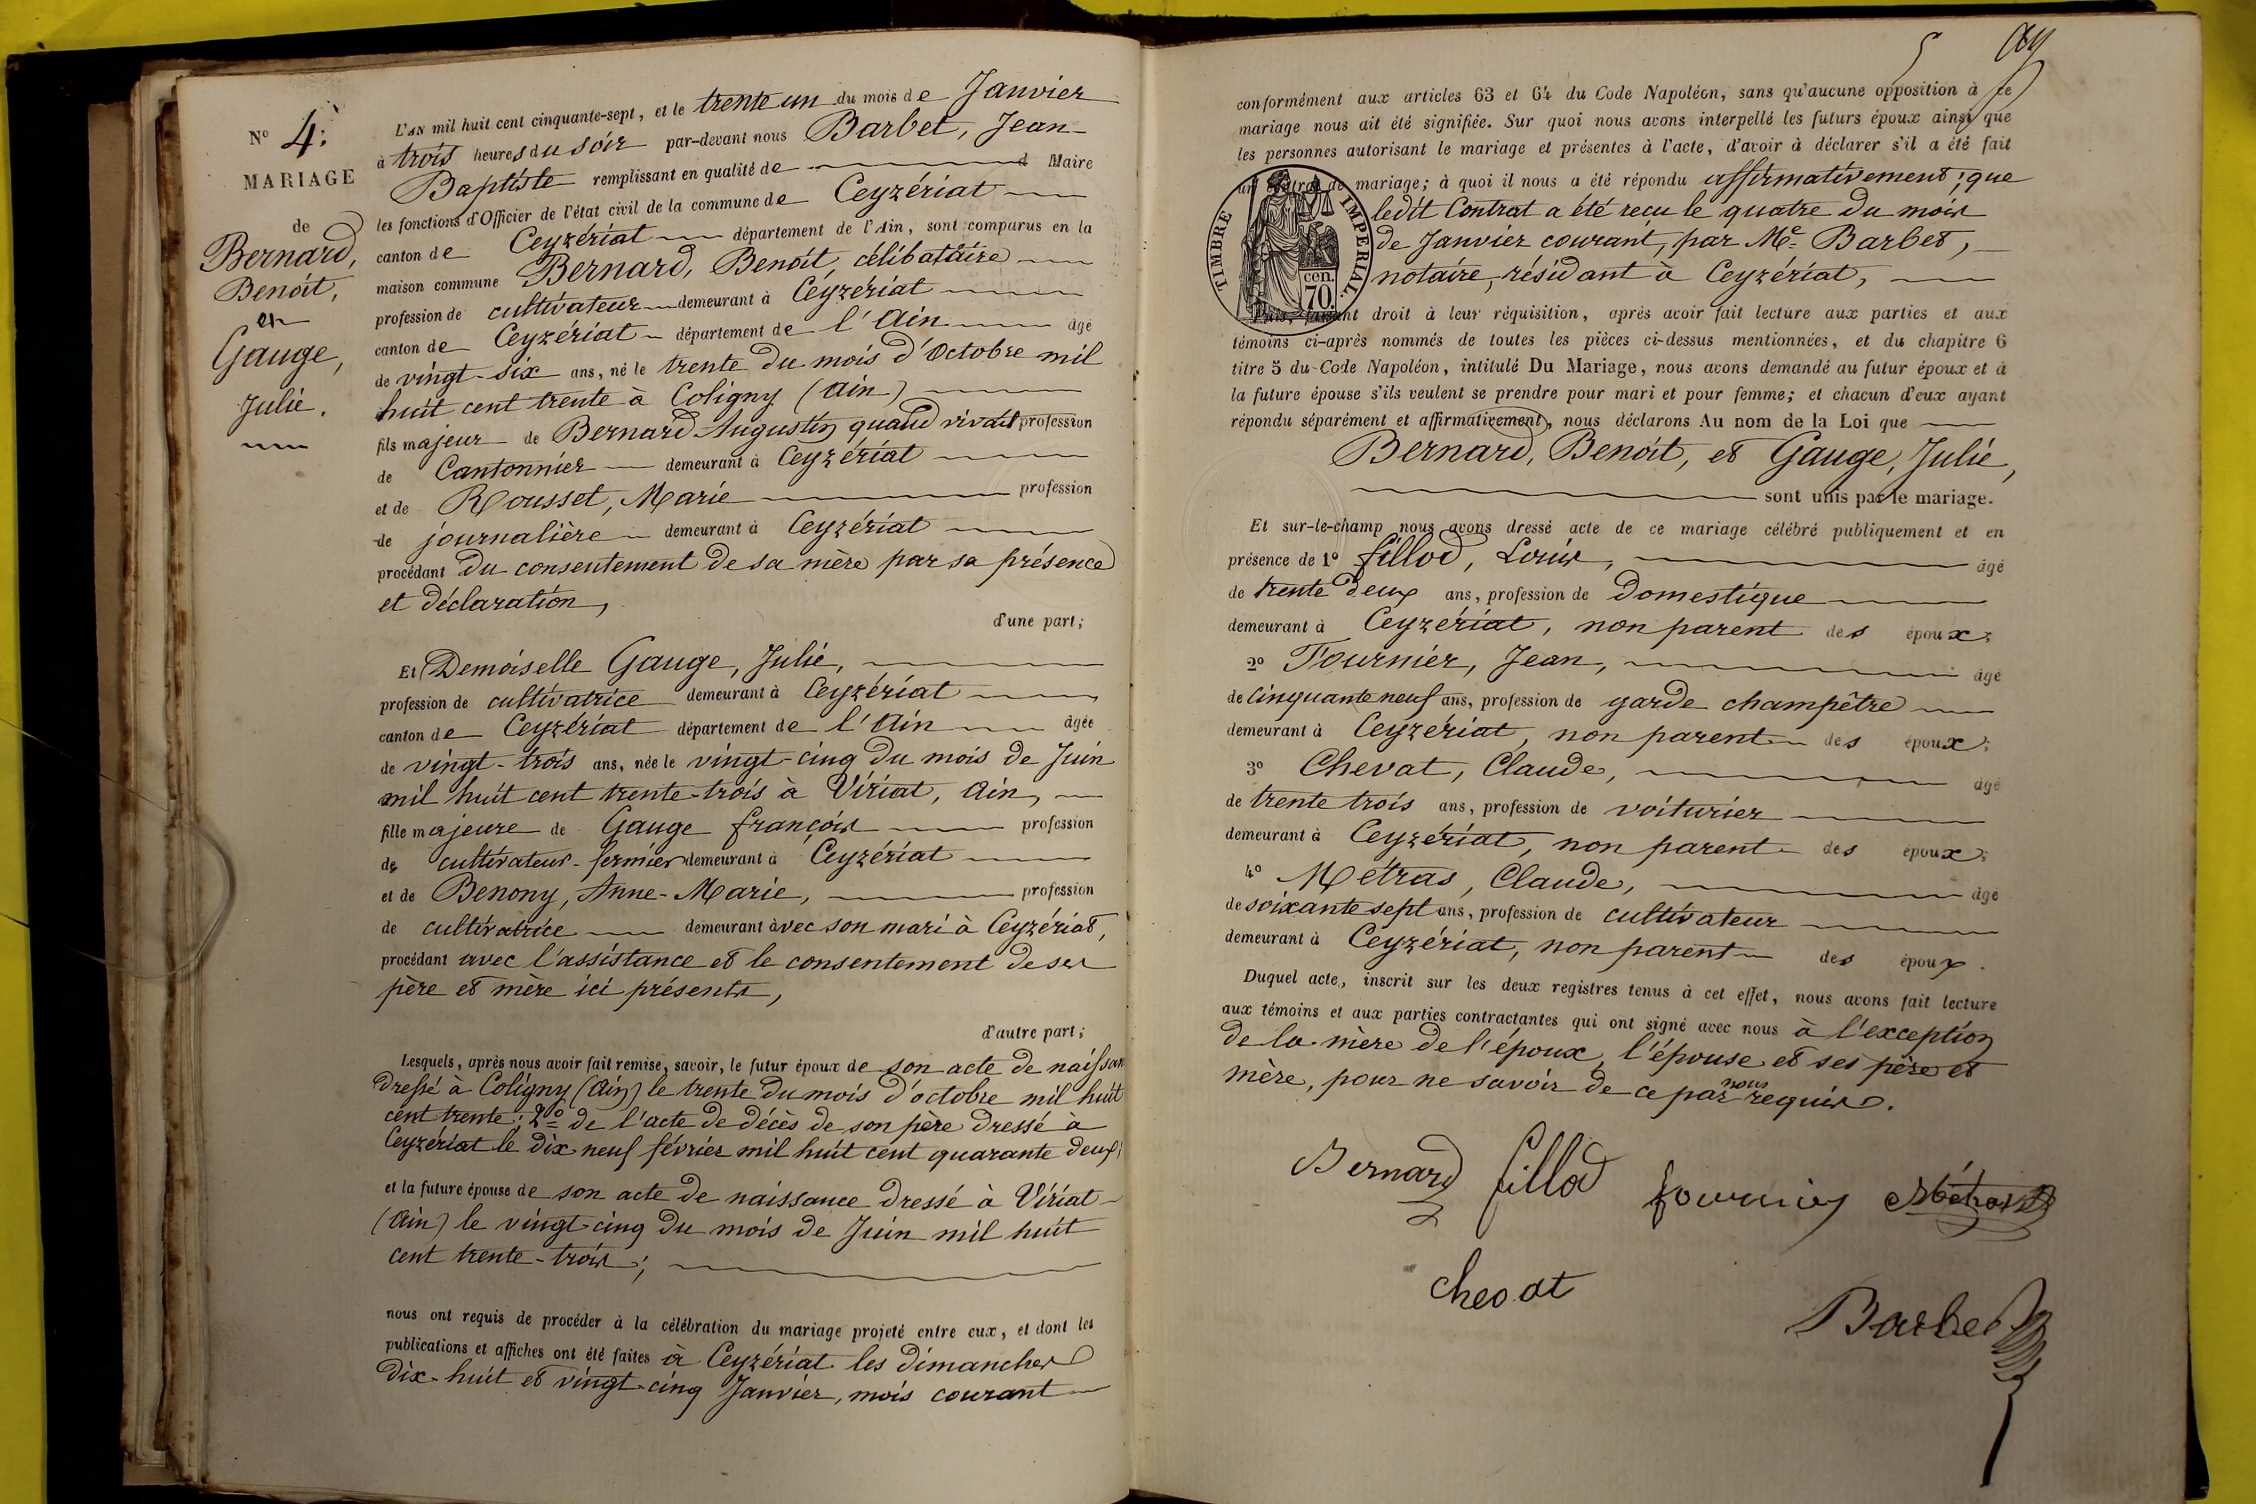 N° 4.
MARIAGE
de
Bernard,
Benoît,
et
Gauge,
Julie.
L'AN mil huit cent cinquante-sept, et le trente un du mois de Janvier
à trois heures du soir par-devant nous Barbet, Jean-
Baptiste remplissant en qualité de Maire
les fonctions d'Officier de l'état civil de la commune de Ceyzériat
canton de Ceyzériat département de l'Ain, sont comparus en la
maison commune Bernard, Benoît, célibataire
profession de cultivateur demeurant à Ceyzériat
canton de Ceyzériat département de l'Ain âgé
de vingt-six ans, né le trente du mois d'Octobre mil
huit cent trente à Coligny (Ain)
fils majeur de Bernard Augustin quand vivait profession
de Cantonnier demeurant à Ceyzériat
et de Rousset, Marie profession
de journalière demeurant à Ceyzériat
procédant du consentement de sa mère par sa présence
et déclaration,
d'une part;
Et Demoiselle Gauge, Julie,
profession de cultivatrice demeurant à Ceyzériat
canton de Ceyzériat département de l'Ain âgée
de vingt-trois ans, née le vingt-cinq du mois de Juin
mil huit cent trente-trois à Viriat, Ain,
fille majeure de Gauge françois profession
de cultivateur-fermier demeurant à Ceyzériat
et de Benony, Anne-Marie, profession
de cultivatrice demeurant avec son mari à Ceyzériat,
procédant avec l'assistance et le consentement de ses
père et mère ici présents,
d'autre part;
Lesquels, après nous avoir fait remise, savoir, le futur époux de son acte de naissan
dressé à Coligny (Ain) le trente du mois d'octobre mil huit
cent trente; 2° de l'acte de décès de son père dressé à
Ceyzériat le dix neuf février mil huit cent quarante deux;
et la future épouse de son acte de naissance dressé à Viriat
(Ain) le vingt-cinq du mois de Juin mil huit
cent trente-trois;
nous ont requis de procéder à la célébration du mariage projeté entre eux, et dont les
publications et affiches ont été faites à Ceyzériat les dimanches
dix-huit et vingt-cinq Janvier, mois courant
5
conformément aux articles 63 et 64 du Code Napoléon, sans qu'aucune opposition à ce
mariage nous ait été signifiée. Sur quoi nous avons interpellé les futurs époux ainsi que
les personnes autorisant le mariage et présentes à l'acte, d'avoir à déclarer s'il a été fait
un contrat de mariage; à quoi il nous a été répondu affirmativement; que
ledit Contrat a été reçu le quatre du mois
de Janvier courant, par Me Barbet,
notaire, résidant à Ceyzériat,
TIMBRE IMPERIAL.
cen.
70.
Puis, faisant droit à leur réquisition, après avoir fait lecture aux parties et aux
témoins ci-après nommés de toutes les pièces ci-dessus mentionnées, et du chapitre 6
titre 5 du Code Napoléon, intitulé Du Mariage, nous avons demandé au futur époux et à
la future épouse s'ils veulent se prendre pour mari et pour femme; et chacun d'eux ayant
répondu séparément et affirmativement, nous déclarons Au nom de la Loi que
Bernard, Benoît, et Gauge, Julie,
sont unis par le mariage.
Et sur-le-champ nous avons dressé acte de ce mariage célébré publiquement et en
présence de 1° fillod, Louis, âgé
de trente deux ans, profession de Domestique
demeurant à Ceyzériat, non parent des époux;
2° Fournier, Jean, âgé
de cinquante neuf ans, profession de garde champêtre
demeurant à Ceyzériat, non parent des époux;
3° Chevat, Claude, âgé
de trente trois ans, profession de voiturier
demeurant à Ceyzériat, non parent des époux;
4° Métras, Claude, âgé
de soixante sept ans, profession de cultivateur
demeurant à Ceyzériat, non parent des époux.
Duquel acte, inscrit sur les deux registres tenus à cet effet, nous avons fait lecture
aux témoins et aux parties contractantes qui ont signé avec nous à l'exception
de la mère de l'époux, l'épouse et ses père et
mère, pour ne savoir de ce par nous requis.
Bernard fillod fournier Métras
chevat
Barbet